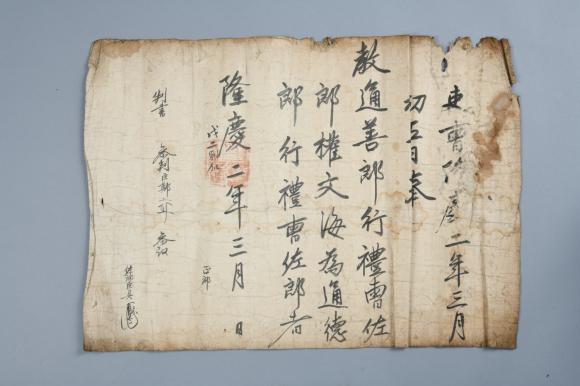 吏曹隆慶二年三月
初五日奉
教通善郎行禮曹佐
郎權文海為通德
郎行禮曹佐郎者
隆慶二年三月 日
判書 參判臣 參議
正郎